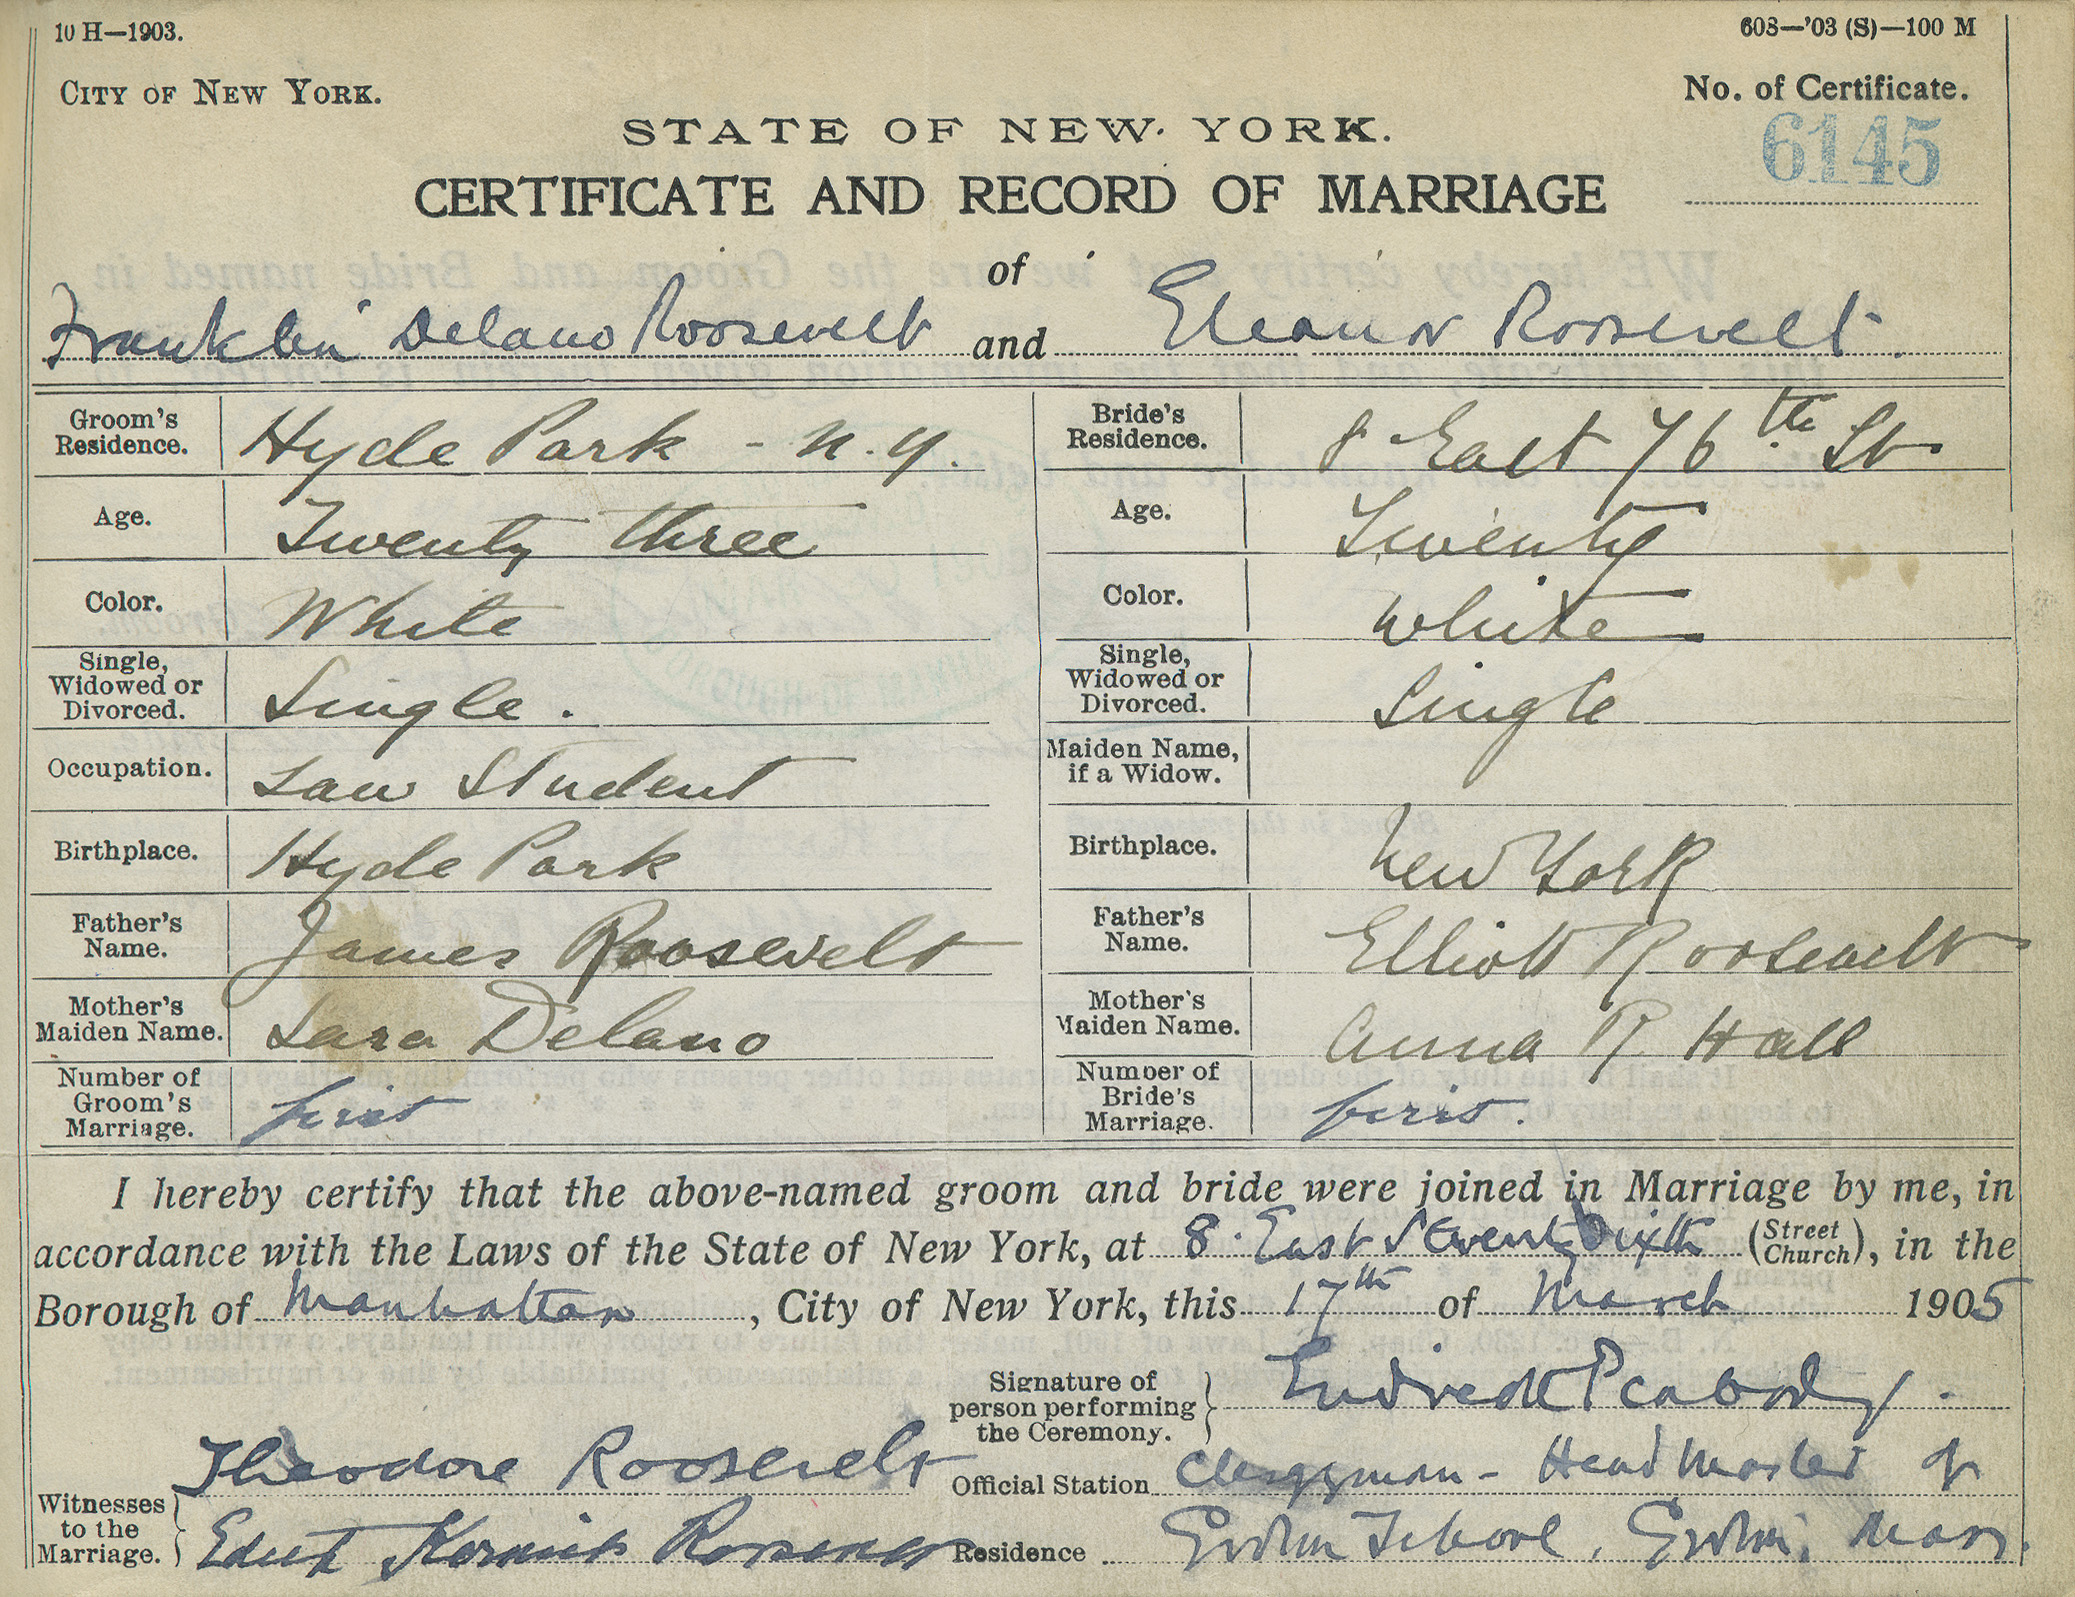 10 H—1903.
608—'03 (S)—100 M
CITY OF NEW YORK.
No. of Certificate.
6145
STATE OF NEW YORK.
CERTIFICATE AND RECORD OF MARRIAGE
of
Franklin Delano Roosevelt and Eleanor Roosevelt.
Groom's Residence. Hyde Park - N.Y.
Bride's Residence. 8 East 76th St.
Age. Twenty three
Age. Twenty
Color. White
Color. White
Single, Widowed or Divorced. Single.
Single, Widowed or Divorced. Single
Occupation. Law Student
Maiden Name, if a Widow.
Birthplace. Hyde Park
Birthplace. New York
Father's Name. James Roosevelt
Father's Name. Elliott Roosevelt
Mother's Maiden Name. Sara Delano
Mother's Maiden Name. Anna R Hall
Number of Groom's Marriage. first
Number of Bride's Marriage. first.
I hereby certify that the above-named groom and bride were joined in Marriage by me, in
accordance with the Laws of the State of New York, at 8 East Seventy Sixth (Street Church), in the
Borough of Manhattan, City of New York, this 17th of March 1905
Signature of person performing the Ceremony. Endicott Peabody.
Witnesses to the Marriage. Theodore Roosevelt
Official Station Clergyman - Head Master of
Edith Kermit Roosevelt
Residence Groton School, Groton, Mass.